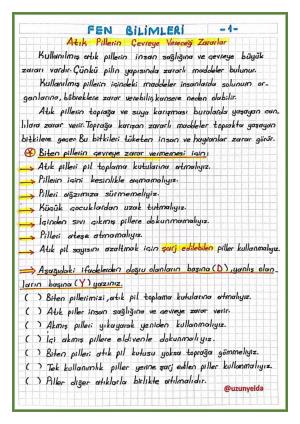 FEN BİLİMLERİ -1-
Atık Pillerin Çevreye Vereceği Zararlar
Kullanılmış atık pillerin insan sağlığına ve çevreye büyük
zararı vardır. Çünkü pilin yapısında zararlı maddeler bulunur.
Kullanılmış pillerin içindeki maddeler insanlarda solunum or-
ganlarına, böbreklere zarar verebilir, kansere neden olabilir.
Atık pillerin toprağa ve suya karışması buralarda yaşayan can-
lılara zarar verir. Toprağa karışan zararlı maddeler toprakta yaşayan
bitkilere geçer. Bu bitkileri tüketen insan ve hayvanlar zarar görür.
Biten pillerin çevreye zarar vermemesi için;
Atık pilleri pil toplama kutularına atmalıyız.
Pillerin içini kesinlikle açmamalıyız.
Pilleri ağzımıza sürmemeliyiz.
Küçük çocuklardan uzak tutmalıyız.
İçinden sıvı çıkmış pillere dokunmamalıyız.
Pilleri ateşe atmamalıyız.
Atık pil sayısını azaltmak için şarj edilebilen piller kullanmalıyız.
Aşağıdaki ifadelerden doğru olanların başına (D), yanlış olan-
ların başına (Y) yazınız.
( ) Biten pillerimizi, atık pil toplama kutularına atmalıyız.
( ) Atık piller insan sağlığına ve çevreye zarar verir.
( ) Akmış pilleri yıkayarak yeniden kullanmalıyız.
( ) İçi akmış pillere eldivenle dokunmalıyız.
( ) Biten pilleri atık pil kutusu yoksa toprağa gömmeliyiz.
( ) Tek kullanımlık piller yerine şarj edilen piller kullanmalıyız.
( ) Piller diğer atıklarla birlikte atılmalıdır.
@uzunyelda